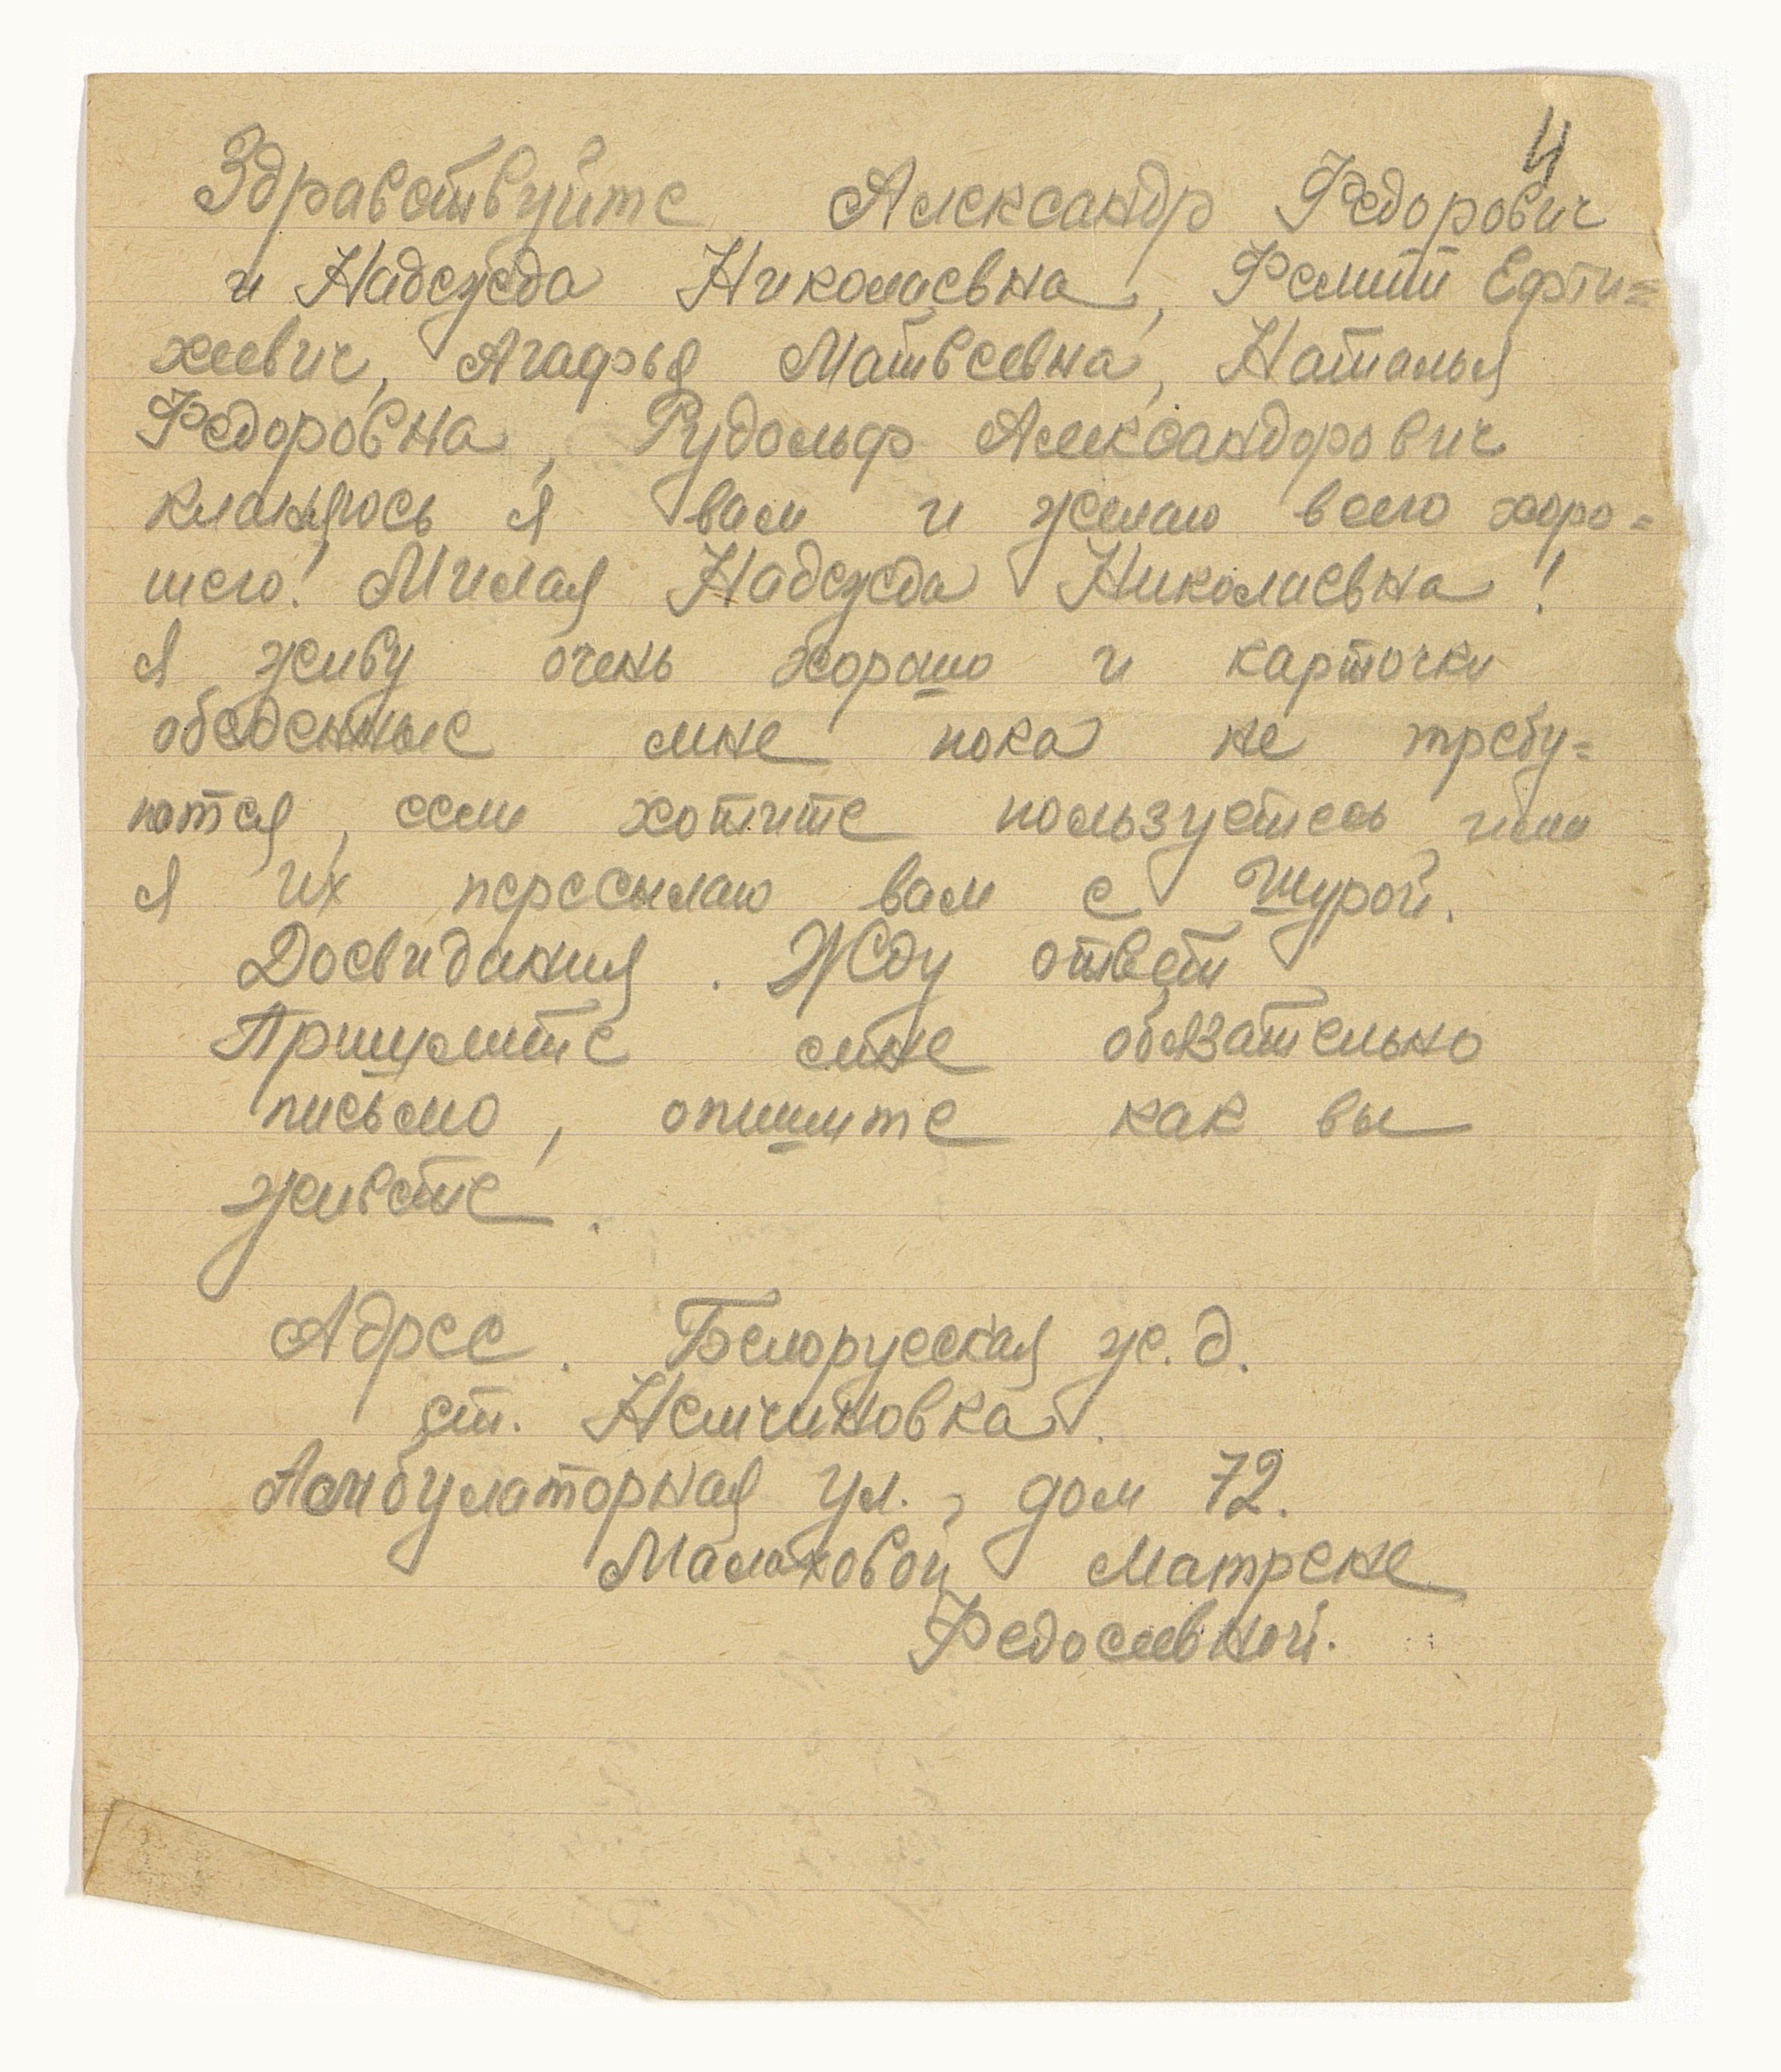 4
Здравствуйте Александр Федорович
и Надежда Николаевна, Ефти=
хеевич, Агафья Матвеевна, Наталья
Федоровна, Рудольф Александрович
кланяюсь я вам и желаю всего хоро=
шего! Милая Надежда Николаевна!
Я живу очень хорошо и карточки
обеденные мне пока не требу=
ются, если хотите пользуетесь ими
я их пересылаю вам с Шурой.
Досвидания. Жду ответ
Пришлите мне обязательно
письмо, опишите как вы
живете.
Адрес. Белорусская ж.д.
ст. Немчиновка.
Амбулаторная ул., дом 72.
Малаховой Матрене
Федосеевной.